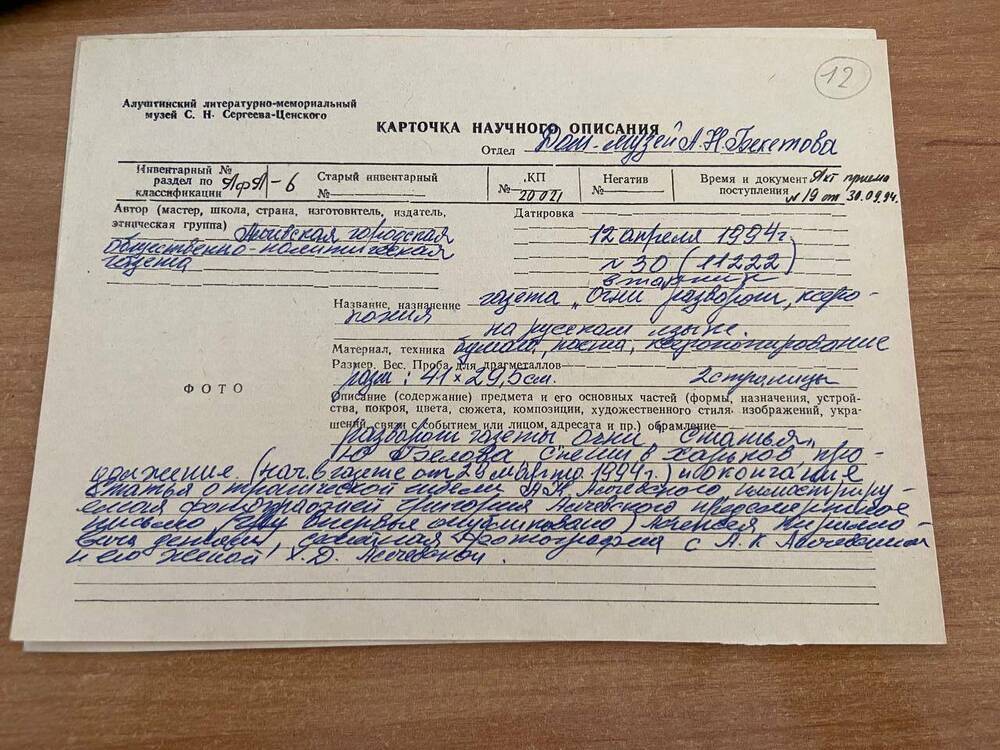 12
Алуштинский литературно-мемориальный
музей С. Н. Сергеева-Ценского
КАРТОЧКА НАУЧНОГО ОПИСАНИЯ
Отдел Дом-музей А.Н.Бекетова
Инвентарный №
раздел по
классификации АфА-6
Старый инвентарный
№
КП
№ 20021
Негатив
№
Время и документ Акт приема
поступления №19 от 30.09.94.
Автор (мастер, школа, страна, изготовитель, издатель,
этническая группа) городская
общественно-политическая
газета
Датировка
12 апреля 1994г.
№30 (11222)
вторник
Название, назначение газета „Огни" разворот, ксеро-
копия
на русском языке.
Материал, техника бумага, паста, ксерокопирование
Размер. Вес. Проба для драгметаллов
разм: 41×29,5см. 2 страницы
ФОТО
Описание (содержание) предмета и его основных частей (формы, назначения, устрой-
ства, покроя, цвета, сюжета, композиции, художественного стиля изображений, укра-
шений, связи с событием или лицом, адресата и пр.) обрамление
разворот газеты Огни, статья
Ю Белова в Харьков про-
должение (нач. в газете от 1994г.) и окончание
статья о трагической гибели А.К. Алчевского иллюстриру-
емая фотографией Григория Алчевского предсмертное
письмо впервые опубликовано) Алексея Кирилло-
вича фотография с А. К Алчевским
и его женой Х.Д. Алчевской.